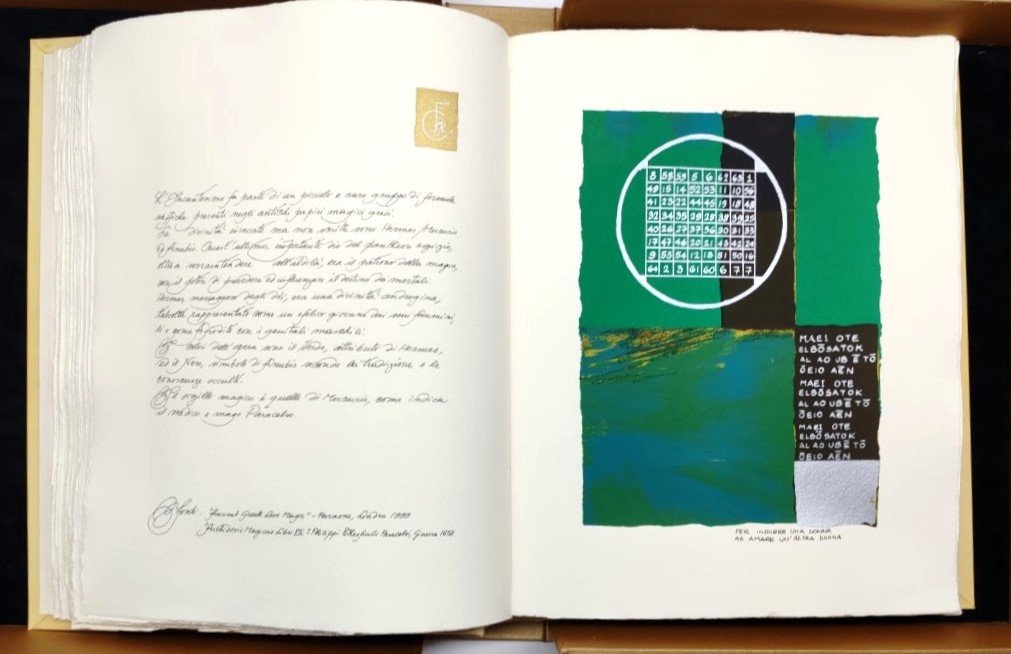 L'Incantesimo fa parte di un piccolo e raro gruppo di formule
saffiche presenti negli antichi papiri magici greci.
Le divinità invocate ma non scritte sono Hermes Mercurio
ed Anubis. Quest'ultimo, importante dio del pantheon egizio,
oltre a sovraintendere all'aldilà, era il patrono della magia,
con il potere di prevedere ed influenzare il destino dei mortali.
Hermes, messaggero degli dèi, era una divinità androgina,
talvolta rappresentato come un efebico giovane dai seni femminili,
o come Afrodite con i genitali maschili.
I colori dell'opera sono il Verde, attributo di Hermes,
ed il Nero, simbolo di Anubis secondo la tradizione e le
conoscenze occulte.
Il sigillo magico è quello di Mercurio, come indica
il medico e mago Paracelso.
Fonti: "Ancient Greek Love Magic" - Faraone, Londra 1999
"Archidoxis Magicae Libri VII" Philippi Theophrasti Paracelsi, Ginevra 1658
8 58 59 5 6 62 63 1
49 15 14 52 53 11 10 56
41 23 22 44 45 19 18 48
32 34 35 29 28 38 39 25
40 26 27 37 36 30 31 33
17 47 46 20 21 43 42 24
9 55 54 12 13 51 50 16
64 2 3 61 60 6 7 7
MAEI OTE
ELBŌSATOK
AL AO UB Ē TŌ
ŌEIO AĒN
MAEI OTE
ELBŌSATOK
AL AO UB Ē TŌ
ŌEIO AĒN
MAEI OTE
ELBŌSATOK
AL AO UB Ē TŌ
ŌEIO AĒN
PER INDURRE UNA DONNA
AD AMARE UN'ALTRA DONNA